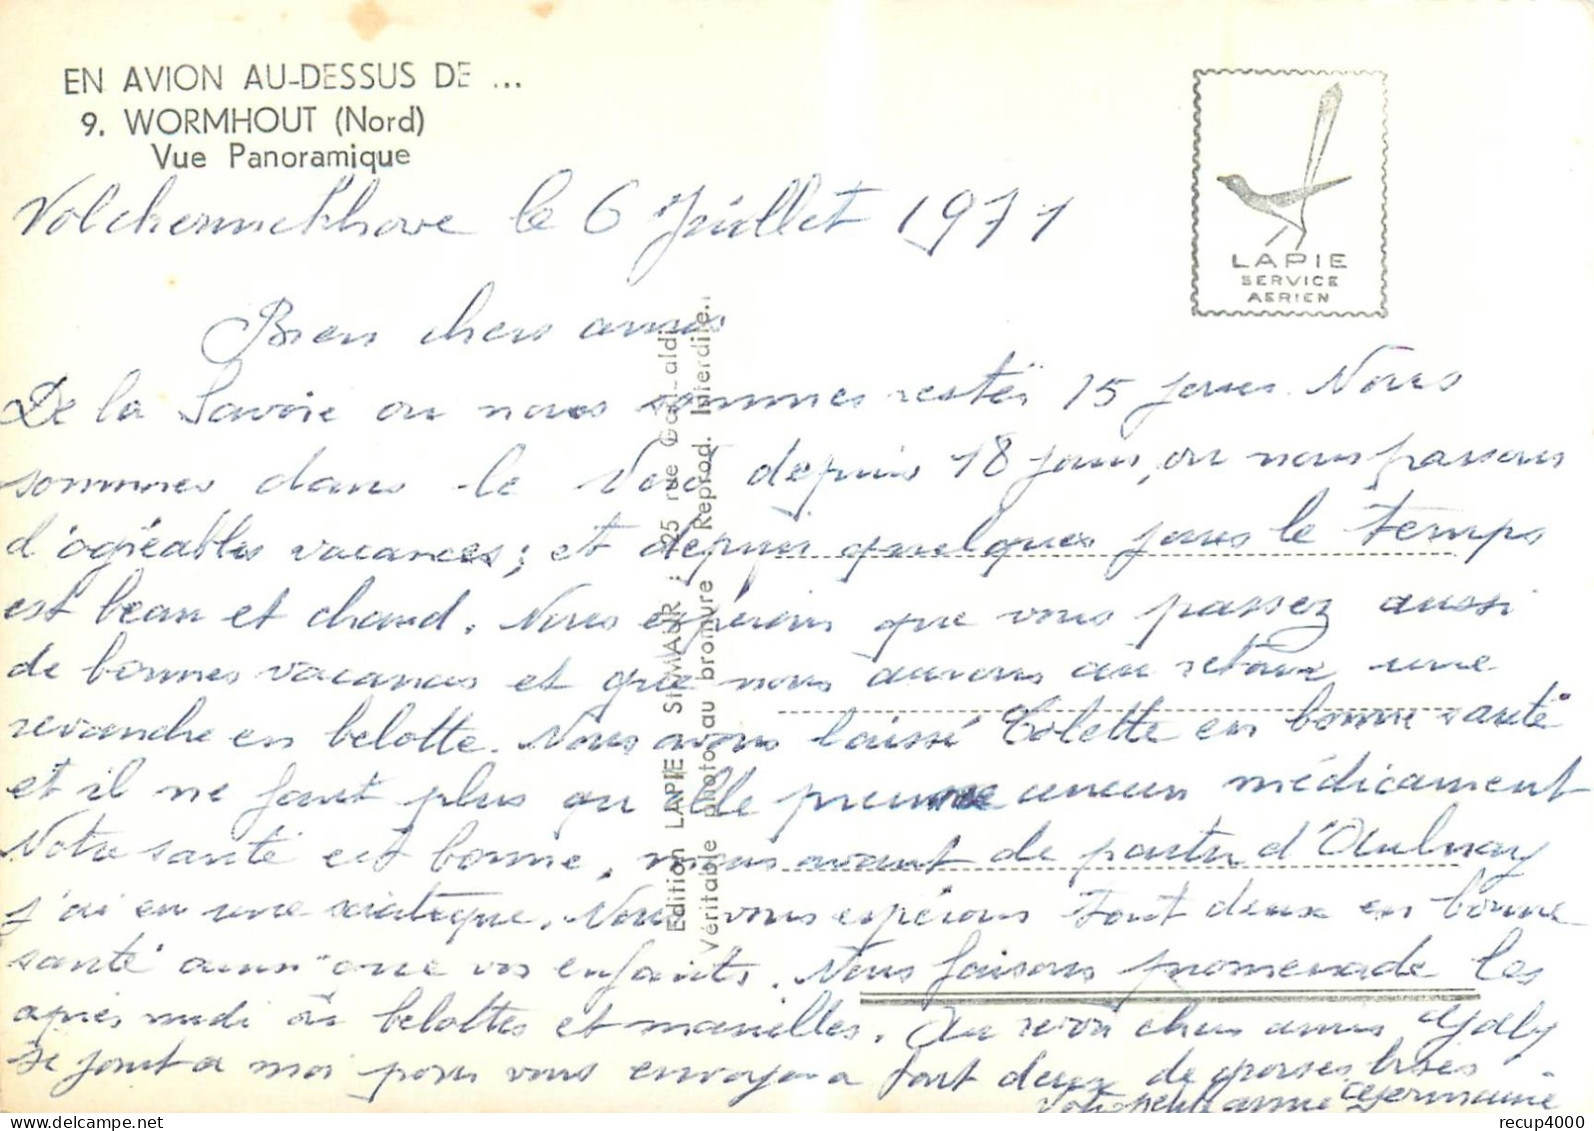 EN AVION AU-DESSUS DE ...
9. WORMHOUT (Nord)
Vue Panoramique
LAPIE
SERVICE
AERIEN
le 6 Juillet 1971
Bien chers amis
De la Savoie ou nous sommes restés 15 jours. Nous
sommes dans le Nord depuis 18 jours, ou nous passons
d'agréables vacances; et depuis quelques jours le temps
est beau et chaud. Nous espérons que vous passez aussi
de bonnes vacances et que nous aurons au retour une
revanche en belotte. Nous avons laissé Colette en bonne santé
et il ne faut plus qu'elle prenne aucun médicament
Notre santé est bonne, mais avant de partir d'Aulnay
j'ai eu une sciatique. Nous vous espérons tout deux en bonne
santé ainsi que vos enfants. Nous faisons promenade les
après midi ou belottes et manilles. Au revoir chers amis
se joint a moi pour vous envoyer a tout deux de grosses bises
Votre petite amie Germaine
Edition LAPIE St-MAUR : 25 rue
Véritable photo au bromure Reprod. Interdite.
recup4000